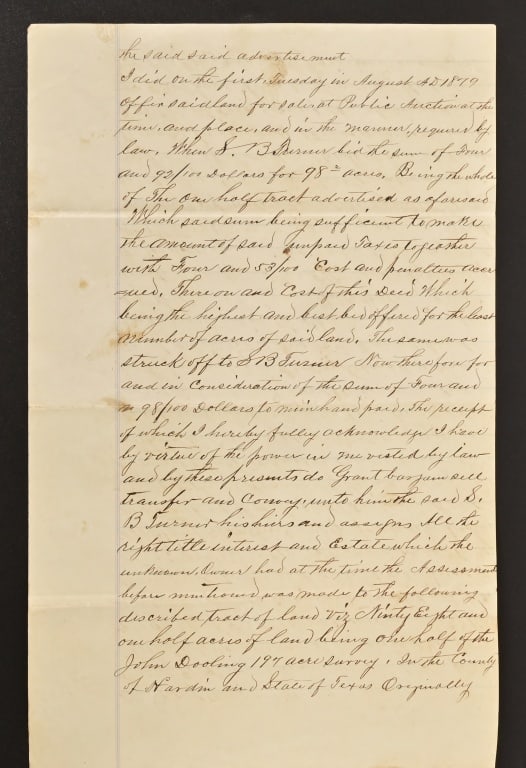 the said said advertisement
I did on the first Tuesday in August AD 1879
offir said land for sale at Public Auction at the
time, and place, and in the manner, required by
law. When S. B Turner bid the sum of Four
and 93/100 Dollars for 98 acres. Being the whole
of The One half tract advertised as aforesaid
Which said sum being sufficient to make
the amount of said unpaid Taxes together
with Four and 53/100 Cost and penalties accr
-ued, There on and Cost of this Deed Which
being the highest and best bid offered for the least
number of acres of said land. The same was
struck off to S B Turner Now therefore for
and in Consideration of the sum of Four and
98/100 Dollars to me in hand paid. The receipt
of which I hereby fulley acknowledge I have
by virtue of the power in me visted by law
and by these presents do Grant bargain sell
transfer and Convey, unto him the said S.
B Turner his hiirs and assigns All the
right title interest and Estate which the
unknown Owner had at the time the Assessment
before mentioned was made to the following
described tract of land Viz Ninty Eight and
one half acres of land being one half of the
John Dooling 197 acre survey. In the County
of Hardin and State of Texas Originally